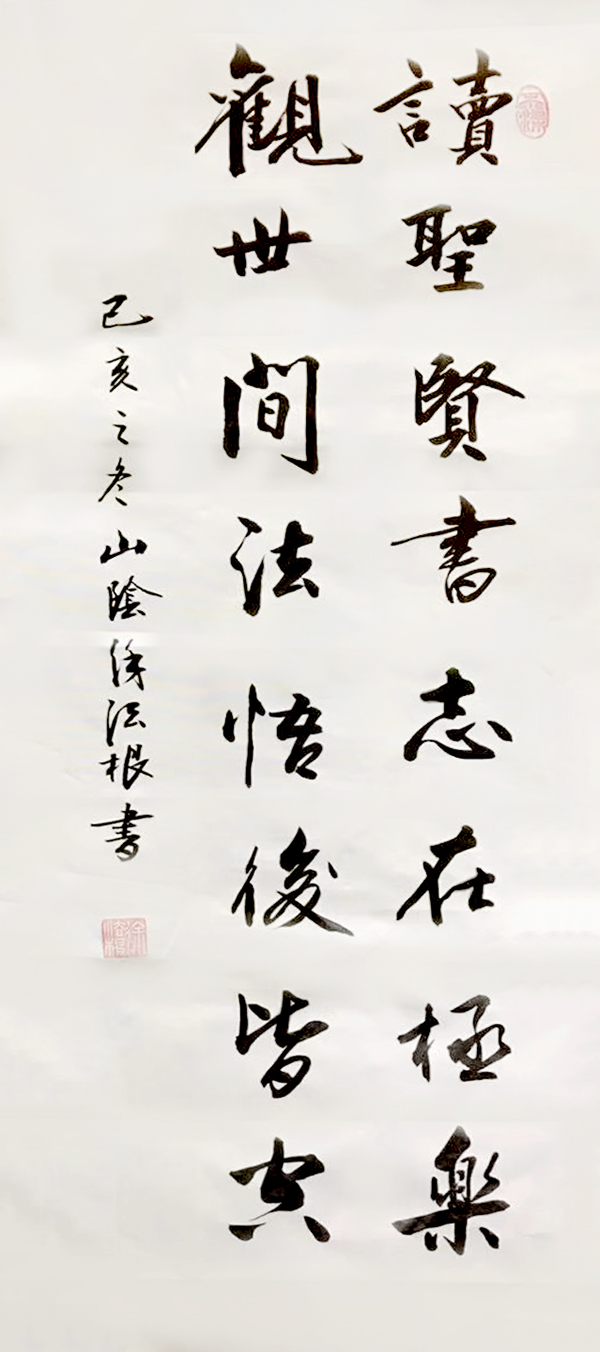 讀聖賢書志在極樂
觀世間法悟後皆空
己亥之冬山陰徐法根書
徐法根